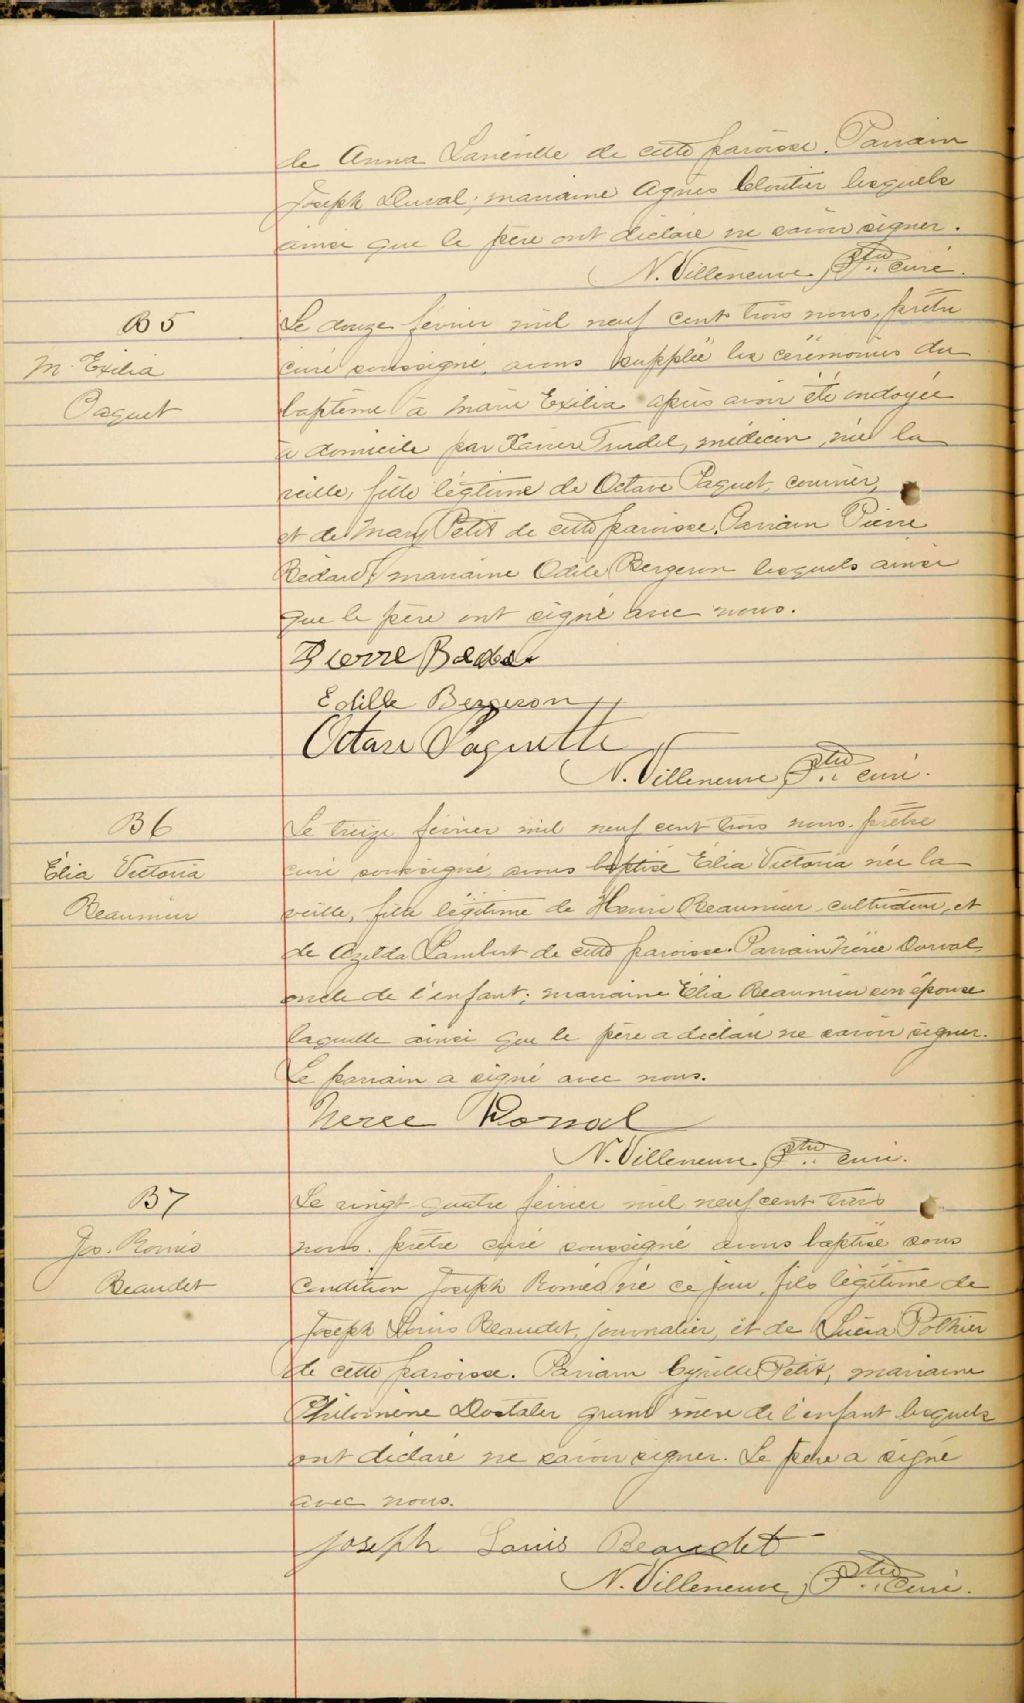 de Anna Laneville de cette paroisse. Parrain
Joseph Duval; marraine Agnès Cloutier lesquels
ainsi que le père ont déclaré ne savoir signer.
N. Villeneuve, Ptre curé.
B5
M. Exilia
Paquet
Le douze février mil neuf cent trois nous, prêtre
curé soussigné, avons suppléé les cérémonies du
baptême à Marie Exilia après avoir été ondoyée
à domicile par Xavier Trudel, médecin, née la
veille, fille légitime de Octave Paquet, courrier,
et de Mary Petit de cette paroisse. Parrain Pierre
Bédard; marraine Odile Bergeron lesquels ainsi
que le père ont signé avec nous.
Pierre
Edille Bergeron
Octave Paquette
N. Villeneuve, Ptre curé.
B6
Élia Victoria
Beaumier
Le treize février mil neuf cent trois nous, prêtre
curé soussigné, avons baptisé Élia Victoria née la
veille, fille légitime de Henri Beaumier, cultivateur, et
de Azilda Lambert de cette paroisse. Parrain Nérée Dorval,
oncle de l'enfant; marraine Élia Beaumier son épouse
laquelle ainsi que le père a déclaré ne savoir signer.
Le parrain a signé avec nous.
Neree Dorval
N. Villeneuve, Ptre curé.
B7
Jos. Roméo
Beaudet
Le vingt-quatre février mil neuf cent trois
nous, prêtre curé soussigné avons baptisé sous
condition Joseph Roméo né ce jour, fils légitime de
Joseph Louis Beaudet, journalier, et de Lucia Pothier
de cette paroisse. Parrain Cyrille Petit, marraine
Philomène Dostaler grand'mère de l'enfant lesquels
ont déclaré ne savoir signer. Le père a signé
avec nous.
Joseph Louis Beaudet
N. Villeneuve, Ptre curé.